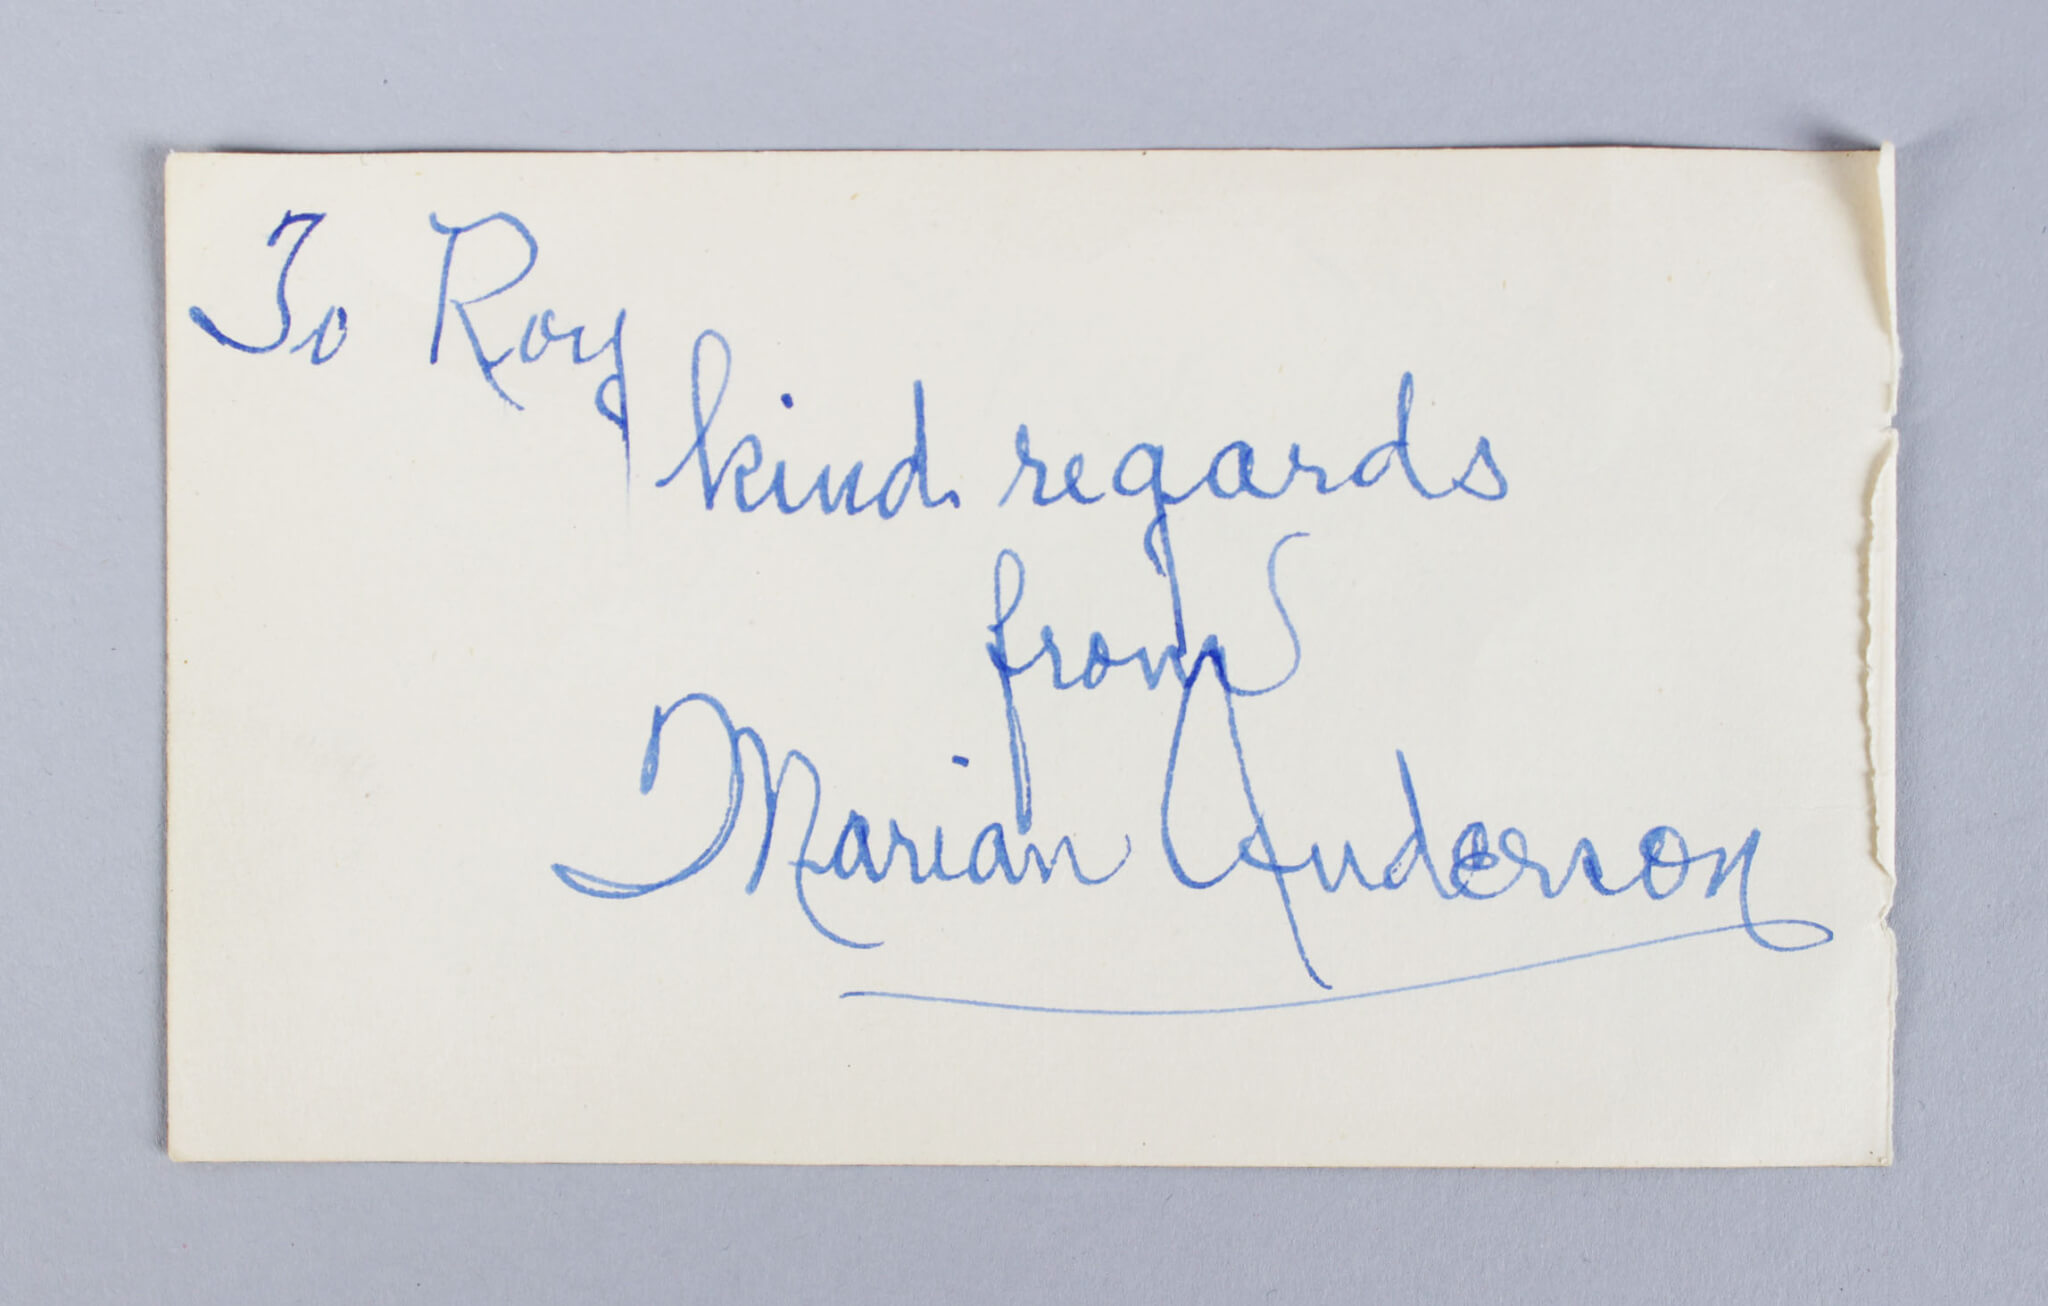 To Roy
kind regards
from
Marian Anderson